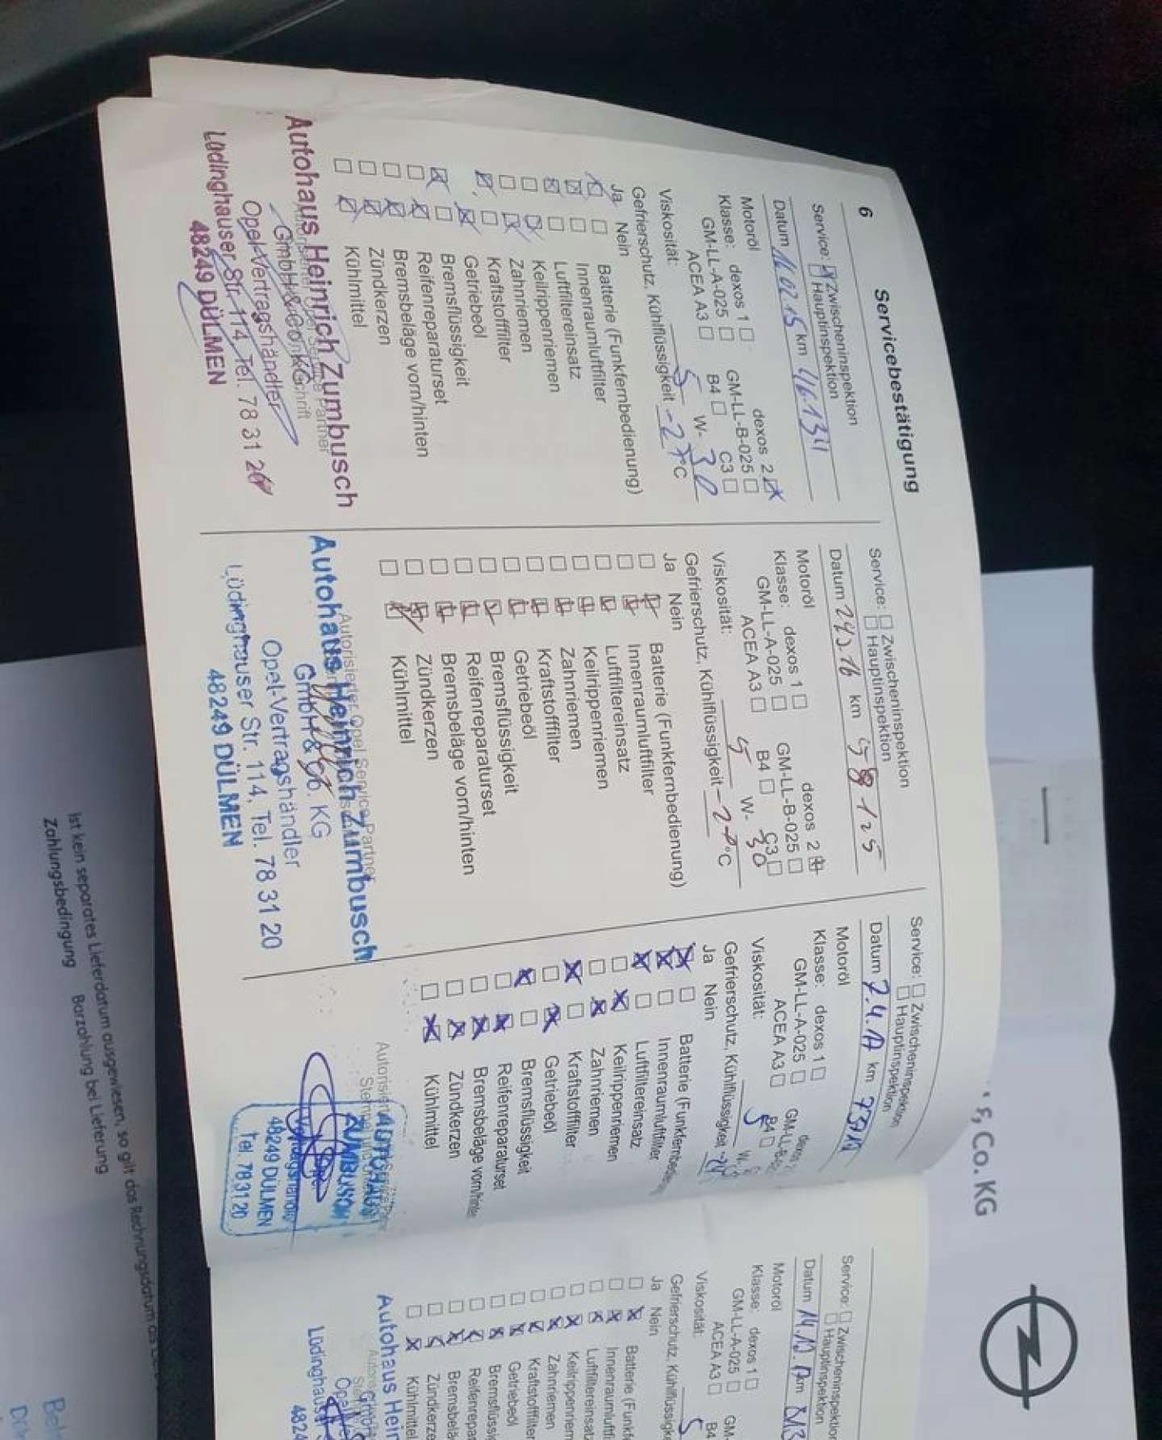 6
Servicebestätigung
Service: Zwischeninspektion
Hauptinspektion
Datum 16.02.15 km 46.134
Motoröl
Klasse: dexos 1 dexos 2
GM-LL-A-025 GM-LL-B-025
ACEA A3 B4 C3
Viskosität: 5 W- 30
Gefrierschutz, Kühlflüssigkeit -27°C
Ja Nein
Batterie (Funkfernbedienung)
Innenraumluftfilter
Luftfiltereinsatz
Keilrippenriemen
Zahnriemen
Kraftstofffilter
Getriebeöl
Bremsflüssigkeit
Reifenreparaturset
Bremsbeläge vorn/hinten
Zündkerzen
Kühlmittel
Autohaus Heinrich Zumbusch
GmbH & Co. KG
Opel-Vertragshändler
Lüdinghauser Str. 114, Tel. 78 31 20
48249 DÜLMEN
Service: Zwischeninspektion
Hauptinspektion
Datum km 58125
Motoröl
Klasse: dexos 1 dexos 2
GM-LL-A-025 GM-LL-B-025
ACEA A3 B4 C3
Viskosität: 5 W- 30
Gefrierschutz, Kühlflüssigkeit -27°C
Ja Nein
Batterie (Funkfernbedienung)
Innenraumluftfilter
Luftfiltereinsatz
Keilrippenriemen
Zahnriemen
Kraftstofffilter
Getriebeöl
Bremsflüssigkeit
Reifenreparaturset
Bremsbeläge vorn/hinten
Zündkerzen
Kühlmittel
Autorisierter Opel Service Partner
Autohaus Heinrich Zumbusch
GmbH & Co. KG
Opel-Vertragshändler
Lüdinghauser Str. 114, Tel. 78 31 20
48249 DÜLMEN
Service: Zwischeninspektion
Hauptinspektion
Datum 7.4.17 km
Motoröl
Klasse: dexos 1
GM-LL-A-025
ACEA A3 B4
Viskosität: 5 W-
Gefrierschutz, Kühlflüssigkeit
Ja Nein
Batterie (Funkfernbe
Innenraumluftfilter
Luftfiltereinsatz
Keilrippenriemen
Zahnriemen
Kraftstofffilter
Getriebeöl
Bremsflüssigkeit
Reifenreparaturset
Bremsbeläge vorn/hinten
Zündkerzen
Kühlmittel
AUTOHAUS
ZUMBUSCH
48249 DÜLMEN
Tel. 78 31 20
Service: Zwischeninspektion
Hauptinspektion
Datum 14.12.17 km
Motoröl
Klasse: dexos 1
GM-LL-A-025 GM-
ACEA A3 B4
Viskosität: 5
Gefrierschutz, Kühlflüssigke
Ja Nein
Batterie (Funkf
Innenraumluftfi
Luftfiltereinsatz
Keilrippenriem
Zahnriemen
Kraftstofffilter
Getriebeöl
Bremsflüssig
Reifenrepar
Bremsbelä
Zündkerze
Kühlmittel
Autohaus Hein
Lüdinghaus
Co. KG
ist kein separates Lieferdatum ausgewiesen, so gilt das Rechnungsdatum als
Zahlungsbedingung Barzahlung bei Lieferung